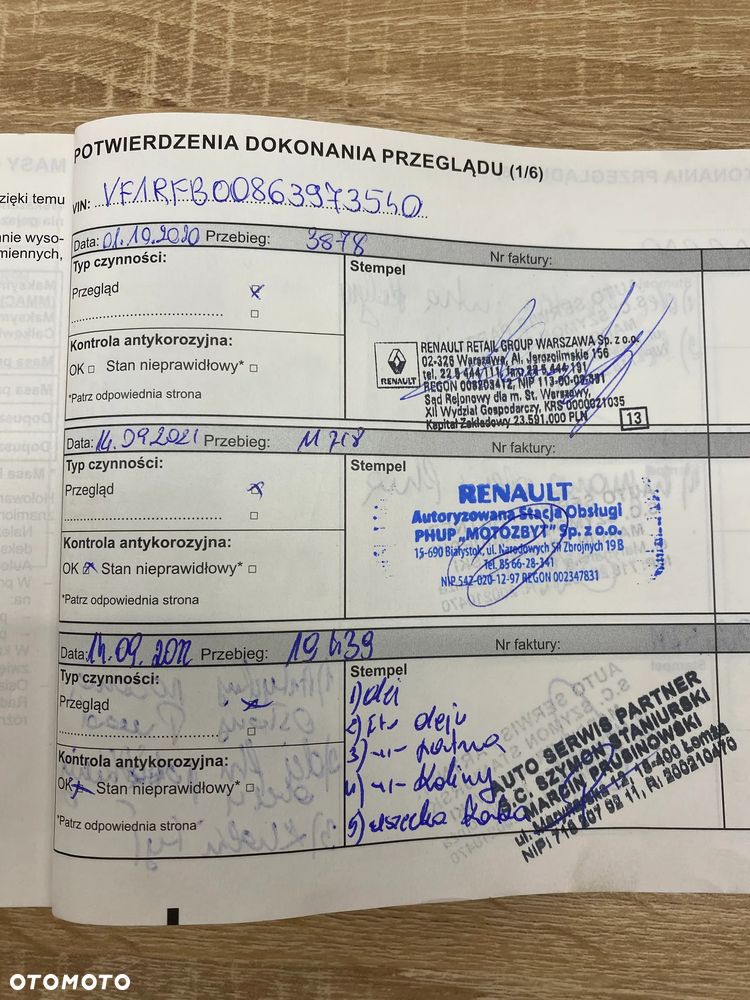 POTWIERDZENIA DOKONANIA PRZEGLĄDU (1/6)
zięki temu
VIN: VF1RFB00863973540
nie wyso-
miennych,
Data: 01.10.2020 Przebieg: 3878 Nr faktury:
Typ czynności:
Przegląd
Kontrola antykorozyjna:
OK □ Stan nieprawidłowy* □
*Patrz odpowiednia strona
Stempel
RENAULT
RENAULT RETAIL GROUP WARSZAWA Sp. z o.o.
02-326 Warszawa, Al. Jerozolimskie 156
REGON 008203412, NIP
Sąd Rejonowy dla m. St. Warszawy,
XII Wydział Gospodarczy, KRS 0000021035
Kapitał Zakładowy 23.591.000 PLN
13
Data: 14.09.2021 Przebieg: 11718 Nr faktury:
Typ czynności:
Przegląd
Kontrola antykorozyjna:
OK Stan nieprawidłowy* □
*Patrz odpowiednia strona
Stempel
RENAULT
Autoryzowana Stacja Obsługi
PHUP „MOTOZBYT" Sp. z o.o.
15-690 Białystok, ul. Narodowych Sił Zbrojnych 19 B
Tel. 85 66-28-341
NIP 542-020-12-97 REGON 002347831
Data: 14.09.2022 Przebieg: Nr faktury:
Typ czynności:
Przegląd
Kontrola antykorozyjna:
OK Stan nieprawidłowy* □
*Patrz odpowiednia strona
Stempel
1) olej
2) f-tr oleju
3) -"-
4) -"- kabiny
5)
AUTO SERWIS PARTNER
S.C. SZYMON STANIURSKI
MARCIN PRUSINOWSKI
12, 18-400 Łomża
NIP 718 207 92 11, R: 200210470
OTOMOTO